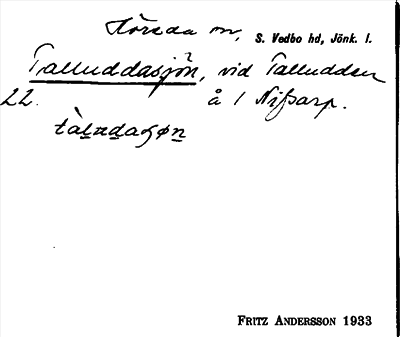 Höreda sn, S. Vedbo hd, Jönk. l.
Talluddasjön, vid Talludden
22. å 1 Nissarp.
tàlɐdaʃøn
FRITZ ANDERSSON 1933